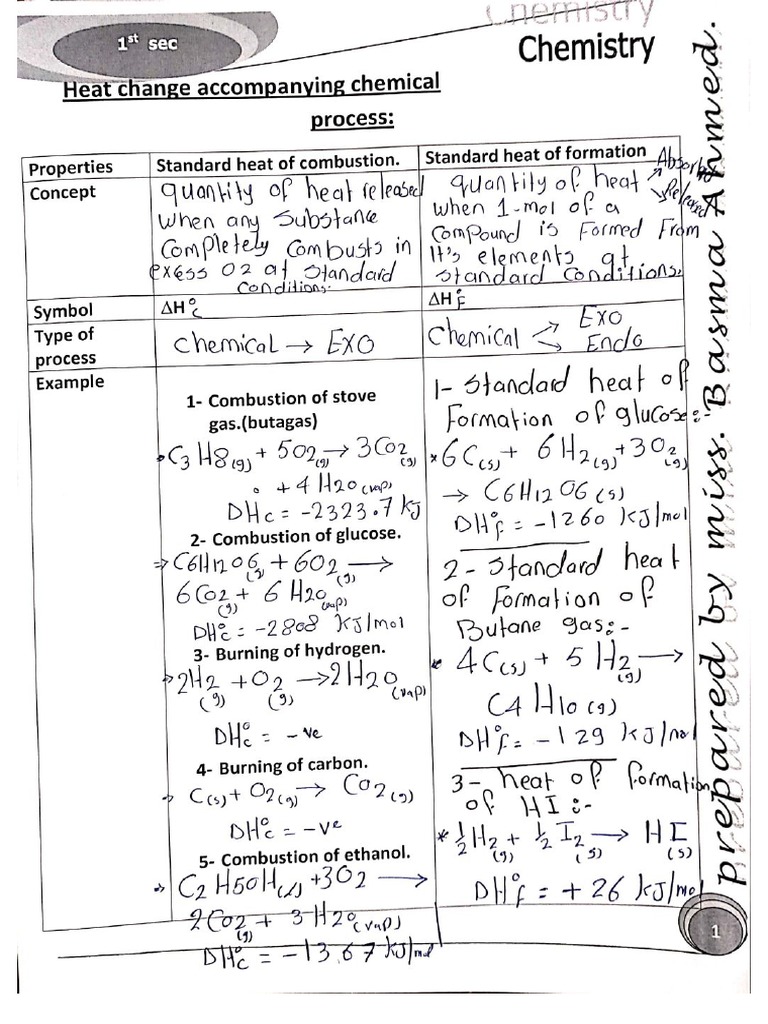 Chemistry
1st sec
Chemistry
Heat change accompanying chemical
process:
Properties
Standard heat of combustion.
Standard heat of formation
Concept
quantity of heat released
when any Substance
Completely Combusts in
exess O2 at Standard
Conditions.
quantity of heat
Released
when 1-mol of a
Compound is Formed From
It's elements at
standard Conditions.
Symbol
ΔH°c
ΔH°F
Type of
process
Chemical → EXO
Chemical
Exo
Endo
Example
1- Combustion of stove
gas.(butagas)
C3H8(g) + 5O2(g) → 3CO2(g)
+ 4H2O(vap)
DHc = -2323.7 kJ
2- Combustion of glucose.
⇒ C6H12O6(s) + 6O2(g) →
6CO2(g) + 6H2O(vap)
DH°c = -2808 kJ/mol
3- Burning of hydrogen.
2H2(g) + O2(g) → 2H2O(vap)
DH°c = -ve
4- Burning of carbon.
→ C(s) + O2(g) → CO2(g)
DH°c = -ve
5- Combustion of ethanol.
⇒ C2H5OH(l) + 3O2 →
2CO2(g) + 3H2O(vap)
DH°c = -13.67 kJ/mol
1- Standard heat of
Formation of glucose:-
* 6C(s) + 6H2(g) + 3O2(g)
→ C6H12O6(s)
DH°f = -1260 kJ/mol
2- Standard heat
of Formation of
Butane gas:-
* 4C(s) + 5H2(g) →
C4H10(g)
DH°f = -129 kJ/mol
3- heat of formation
of HI:-
* ½H2(g) + ½I2(s) → HI(s)
DH°f = +26 kJ/mol
prepared by miss. Basma Ahmed.
1